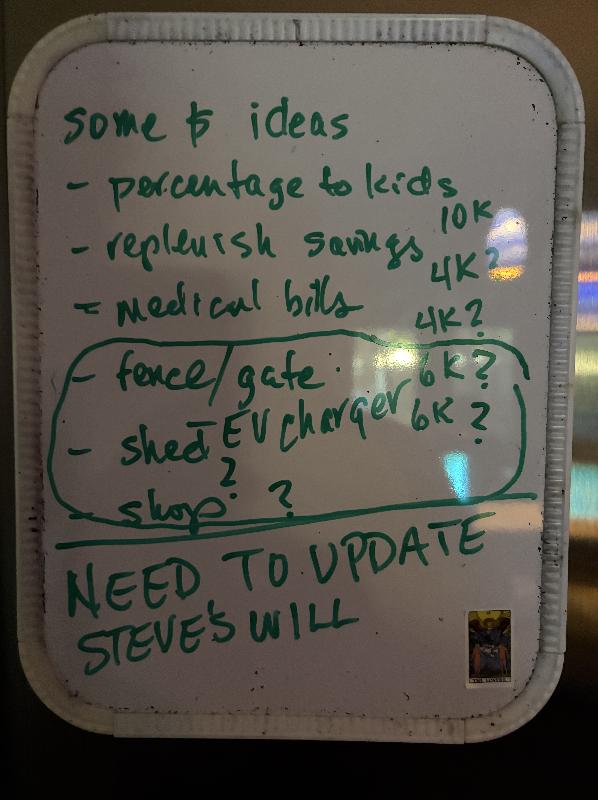 some $ ideas
- percentage to kids 10K
- replenish savings 4K?
- medical bills 4K?
- fence/gate 6K?
- shed - EV charger 6K ?
?
- shop ?
NEED TO UPDATE
STEVE'S WILL
THE LOVERS